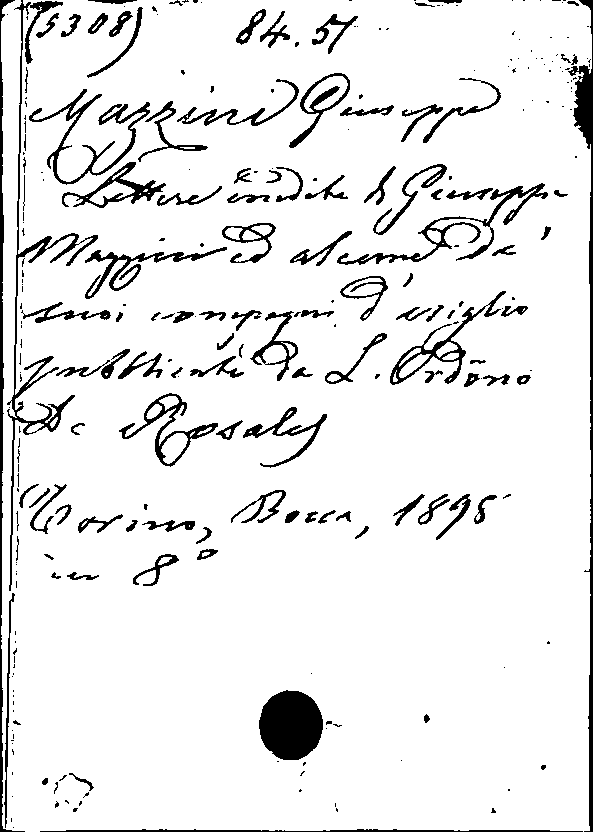 (5308) 84.51
Mazzini Giuseppe
Lettere inedite di Giuseppe
Mazzini ed alcune de'
suoi compagni d'esiglio
pubblicate da L. Ordõno
De Rosales
Torino, Bocca, 1898
in 8°